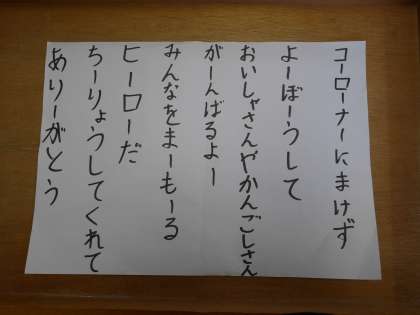 コーローナーにまけず
よーぼーうして
おいしゃさんやかんごしさん
がーんばるよー
みんなをまーもーる
ヒーローだ
ちーりょうしてくれて
ありーがとう